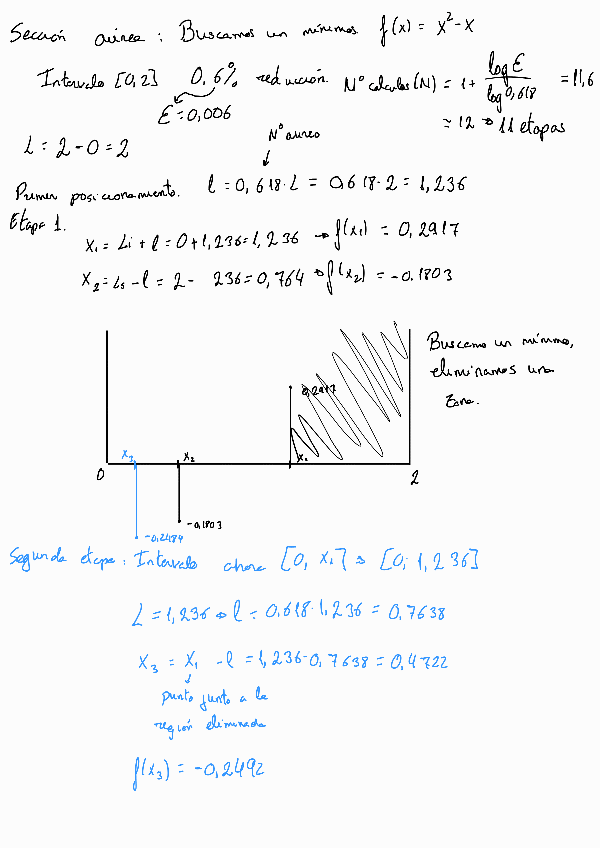 Sección aúrea: Buscamos un mínimos f(x) = x² - x
Intervalo [0,2] 0,6% reducción. Nº calculos (N) = 1 + log E / log 0,618 = 11,6
E = 0,006
≃ 12 → 11 etapas
L = 2 - 0 = 2
Nº aureo
Primer posicionamiento. l = 0,618·L = 0,618·2 = 1,236
Etapa 1.
x₁ = Li + l = 0 + 1,236 = 1,236 → f(x₁) = 0,2917
x₂ = Ls - l = 2 - 236 = 0,764 → f(x₂) = -0.1803
Buscamo un mínimo,
eliminamos una
zona.
0,2917
x₃ x₂ x₁
0 2
-0,1803
-0,2484
Segunda etapa: Intervalo ahora [0, x₁] → [0; 1,236]
L = 1,236 → l = 0,618·1,236 = 0,7638
x₃ = x₁ - l = 1,236-0,7638 = 0,4722
punto junto a la
región eliminada
f(x₃) = -0,2492